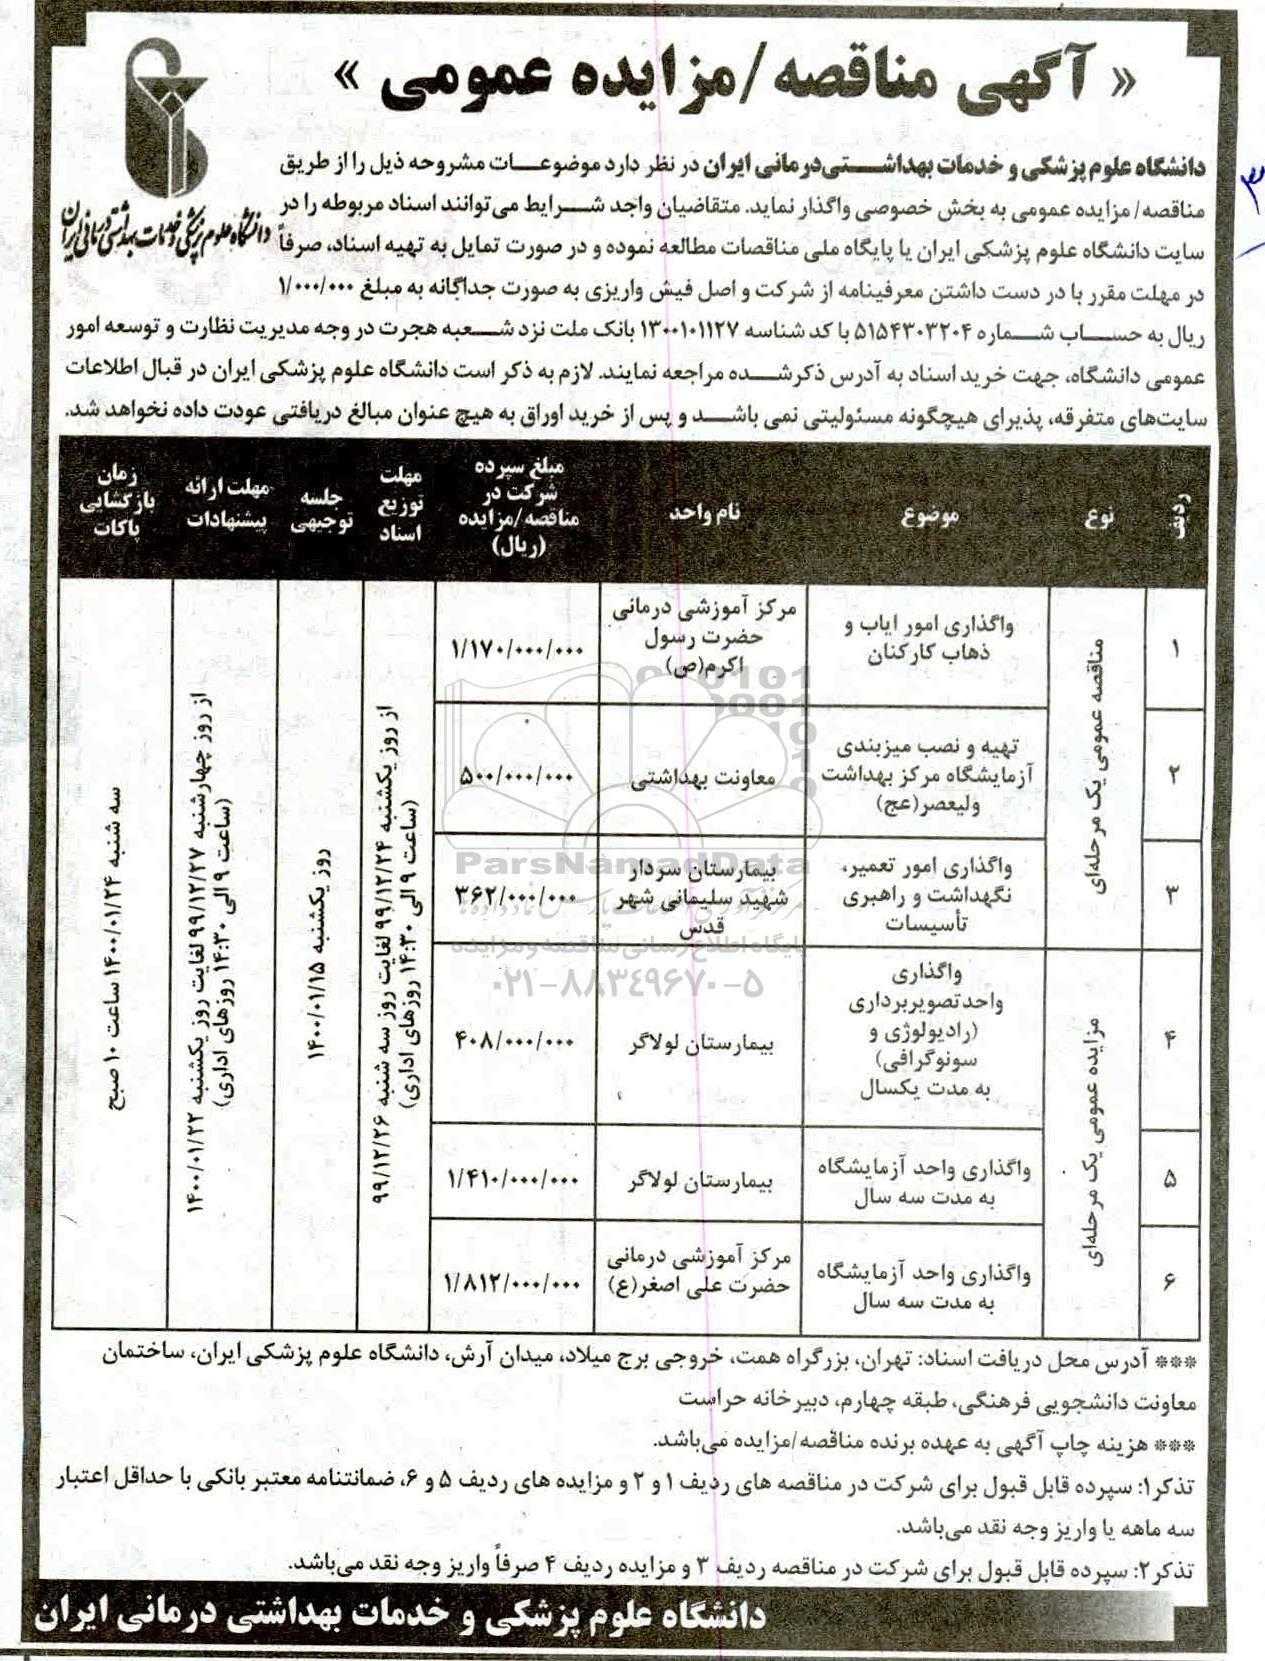 « آگهی مناقصه/مزایده عمومی »
دانشگاه علوم پزشکی و خدمات بهداشتی درمانی ایران
دانشگاه علوم پزشکی و خدمات بهداشتی‌درمانی ایران در نظر دارد موضوعات مشروحه ذیل را از طریق
مناقصه/ مزایده عمومی به بخش خصوصی واگذار نماید. متقاضیان واجد شرایط می‌توانند اسناد مربوطه را در
سایت دانشگاه علوم پزشکی ایران یا پایگاه ملی مناقصات مطالعه نموده و در صورت تمایل به تهیه اسناد، صرفاً
در مهلت مقرر با در دست داشتن معرفینامه از شرکت و اصل فیش واریزی به صورت جداگانه به مبلغ ۱/۰۰۰/۰۰۰
ریال به حساب شماره ۵۱۵۴۳۰۳۲۰۴ با کد شناسه ۱۳۰۰۱۰۱۱۲۷ بانک ملت نزد شعبه هجرت در وجه مدیریت نظارت و توسعه امور
عمومی دانشگاه، جهت خرید اسناد به آدرس ذکرشده مراجعه نمایند. لازم به ذکر است دانشگاه علوم پزشکی ایران در قبال اطلاعات
سایت‌های متفرقه، پذیرای هیچگونه مسئولیتی نمی باشد و پس از خرید اوراق به هیچ عنوان مبالغ دریافتی عودت داده نخواهد شد.
ردیف
نوع
موضوع
نام واحد
مبلغ سپرده
شرکت در
مناقصه/مزایده
(ریال)
مهلت
توزیع
اسناد
جلسه
توجیهی
مهلت ارائه
پیشنهادات
زمان
بازگشایی
پاکات
۱
مناقصه عمومی یک مرحله‌ای
واگذاری امور ایاب و
ذهاب کارکنان
مرکز آموزشی درمانی
حضرت رسول
اکرم(ص)
۱/۱۷۰/۰۰۰/۰۰۰
از روز یکشنبه ۹۹/۱۲/۲۴ لغایت روز سه شنبه ۹۹/۱۲/۲۶
(ساعت ۹ الی ۱۴:۳۰ روزهای اداری)
روز یکشنبه ۱۴۰۰/۰۱/۱۵
از روز چهارشنبه ۹۹/۱۲/۲۷ لغایت روز یکشنبه ۱۴۰۰/۰۱/۲۲
(ساعت ۹ الی ۱۴:۳۰ روزهای اداری)
سه شنبه ۱۴۰۰/۰۱/۲۴ ساعت ۱۰ صبح
۲
تهیه و نصب میزبندی
آزمایشگاه مرکز بهداشت
ولیعصر(عج)
معاونت بهداشتی
۵۰۰/۰۰۰/۰۰۰
۳
واگذاری امور تعمیر،
نگهداشت و راهبری
تأسیسات
بیمارستان سردار
شهید سلیمانی شهر
قدس
۳۶۲/۰۰۰/۰۰۰
۴
مزایده عمومی یک مرحله‌ای
واگذاری
واحدتصویربرداری
(رادیولوژی و
سونوگرافی)
به مدت یکسال
بیمارستان لولاگر
۴۰۸/۰۰۰/۰۰۰
۵
واگذاری واحد آزمایشگاه
به مدت سه سال
بیمارستان لولاگر
۱/۴۱۰/۰۰۰/۰۰۰
۶
واگذاری واحد آزمایشگاه
به مدت سه سال
مرکز آموزشی درمانی
حضرت علی اصغر(ع)
۱/۸۱۲/۰۰۰/۰۰۰
ParsNamadData
پایگاه اطلاع رسانی مناقصه و مزایده
۰۲۱-۸۸۳۴۹۶۷۰-۵
*** آدرس محل دریافت اسناد: تهران، بزرگراه همت، خروجی برج میلاد، میدان آرش، دانشگاه علوم پزشکی ایران، ساختمان
معاونت دانشجویی فرهنگی، طبقه چهارم، دبیرخانه حراست
*** هزینه چاپ آگهی به عهده برنده مناقصه/مزایده می‌باشد.
تذکر۱: سپرده قابل قبول برای شرکت در مناقصه های ردیف ۱ و ۲ و مزایده های ردیف ۵ و ۶، ضمانتنامه معتبر بانکی با حداقل اعتبار
سه ماهه یا واریز وجه نقد می‌باشد.
تذکر۲: سپرده قابل قبول برای شرکت در مناقصه ردیف ۳ و مزایده ردیف ۴ صرفاً واریز وجه نقد می‌باشد.
دانشگاه علوم پزشکی و خدمات بهداشتی درمانی ایران